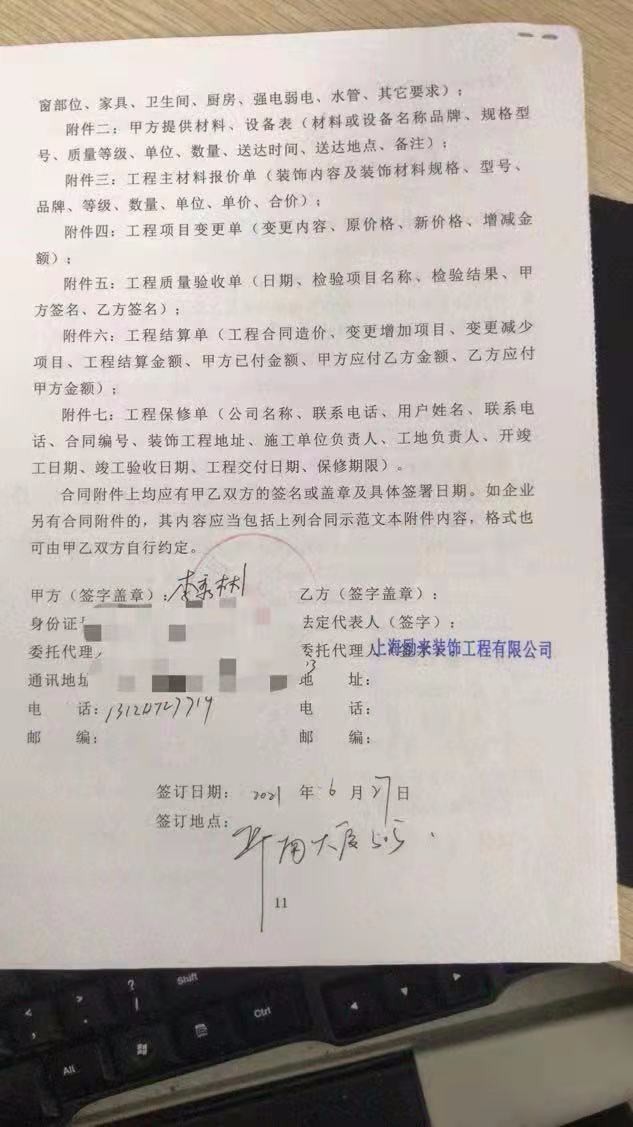 窗部位、家具、卫生间、厨房、强电弱电、水管、其它要求）；
附件二：甲方提供材料、设备表（材料或设备名称品牌、规格型
号、质量等级、单位、数量、送达时间、送达地点、备注）；
附件三：工程主材料报价单（装饰内容及装饰材料规格、型号、
品牌、等级、数量、单位、单价、合价）；
附件四：工程项目变更单（变更内容、原价格、新价格、增减金
额）；
附件五：工程质量验收单（日期、检验项目名称、检验结果、甲
方签名、乙方签名）；
附件六：工程结算单（工程合同造价、变更增加项目、变更减少
项目、工程结算金额、甲方已付金额、甲方应付乙方金额、乙方应付
甲方金额）；
附件七：工程保修单（公司名称、联系电话、用户姓名、联系电
话、合同编号、装饰工程地址、施工单位负责人、工地负责人、开竣
工日期、竣工验收日期、工程交付日期、保修期限）。
合同附件上均应有甲乙双方的签名或盖章及具体签署日期。如企业
另有合同附件的，其内容应当包括上列合同示范文本附件内容，格式也
可由甲乙双方自行约定。
甲方（签字盖章）： 乙方（签字盖章）：
身份证 法定代表人（签字）：
委托代理 委托代理人 上海励来装饰工程有限公司
通讯地址 13 地 址：
电 话：13124727714 电 话：
邮 编： 邮 编：
签订日期： 2021 年 6 月 27 日
签订地点：
大厦 505
11
? Shift
Ctrl
Alt